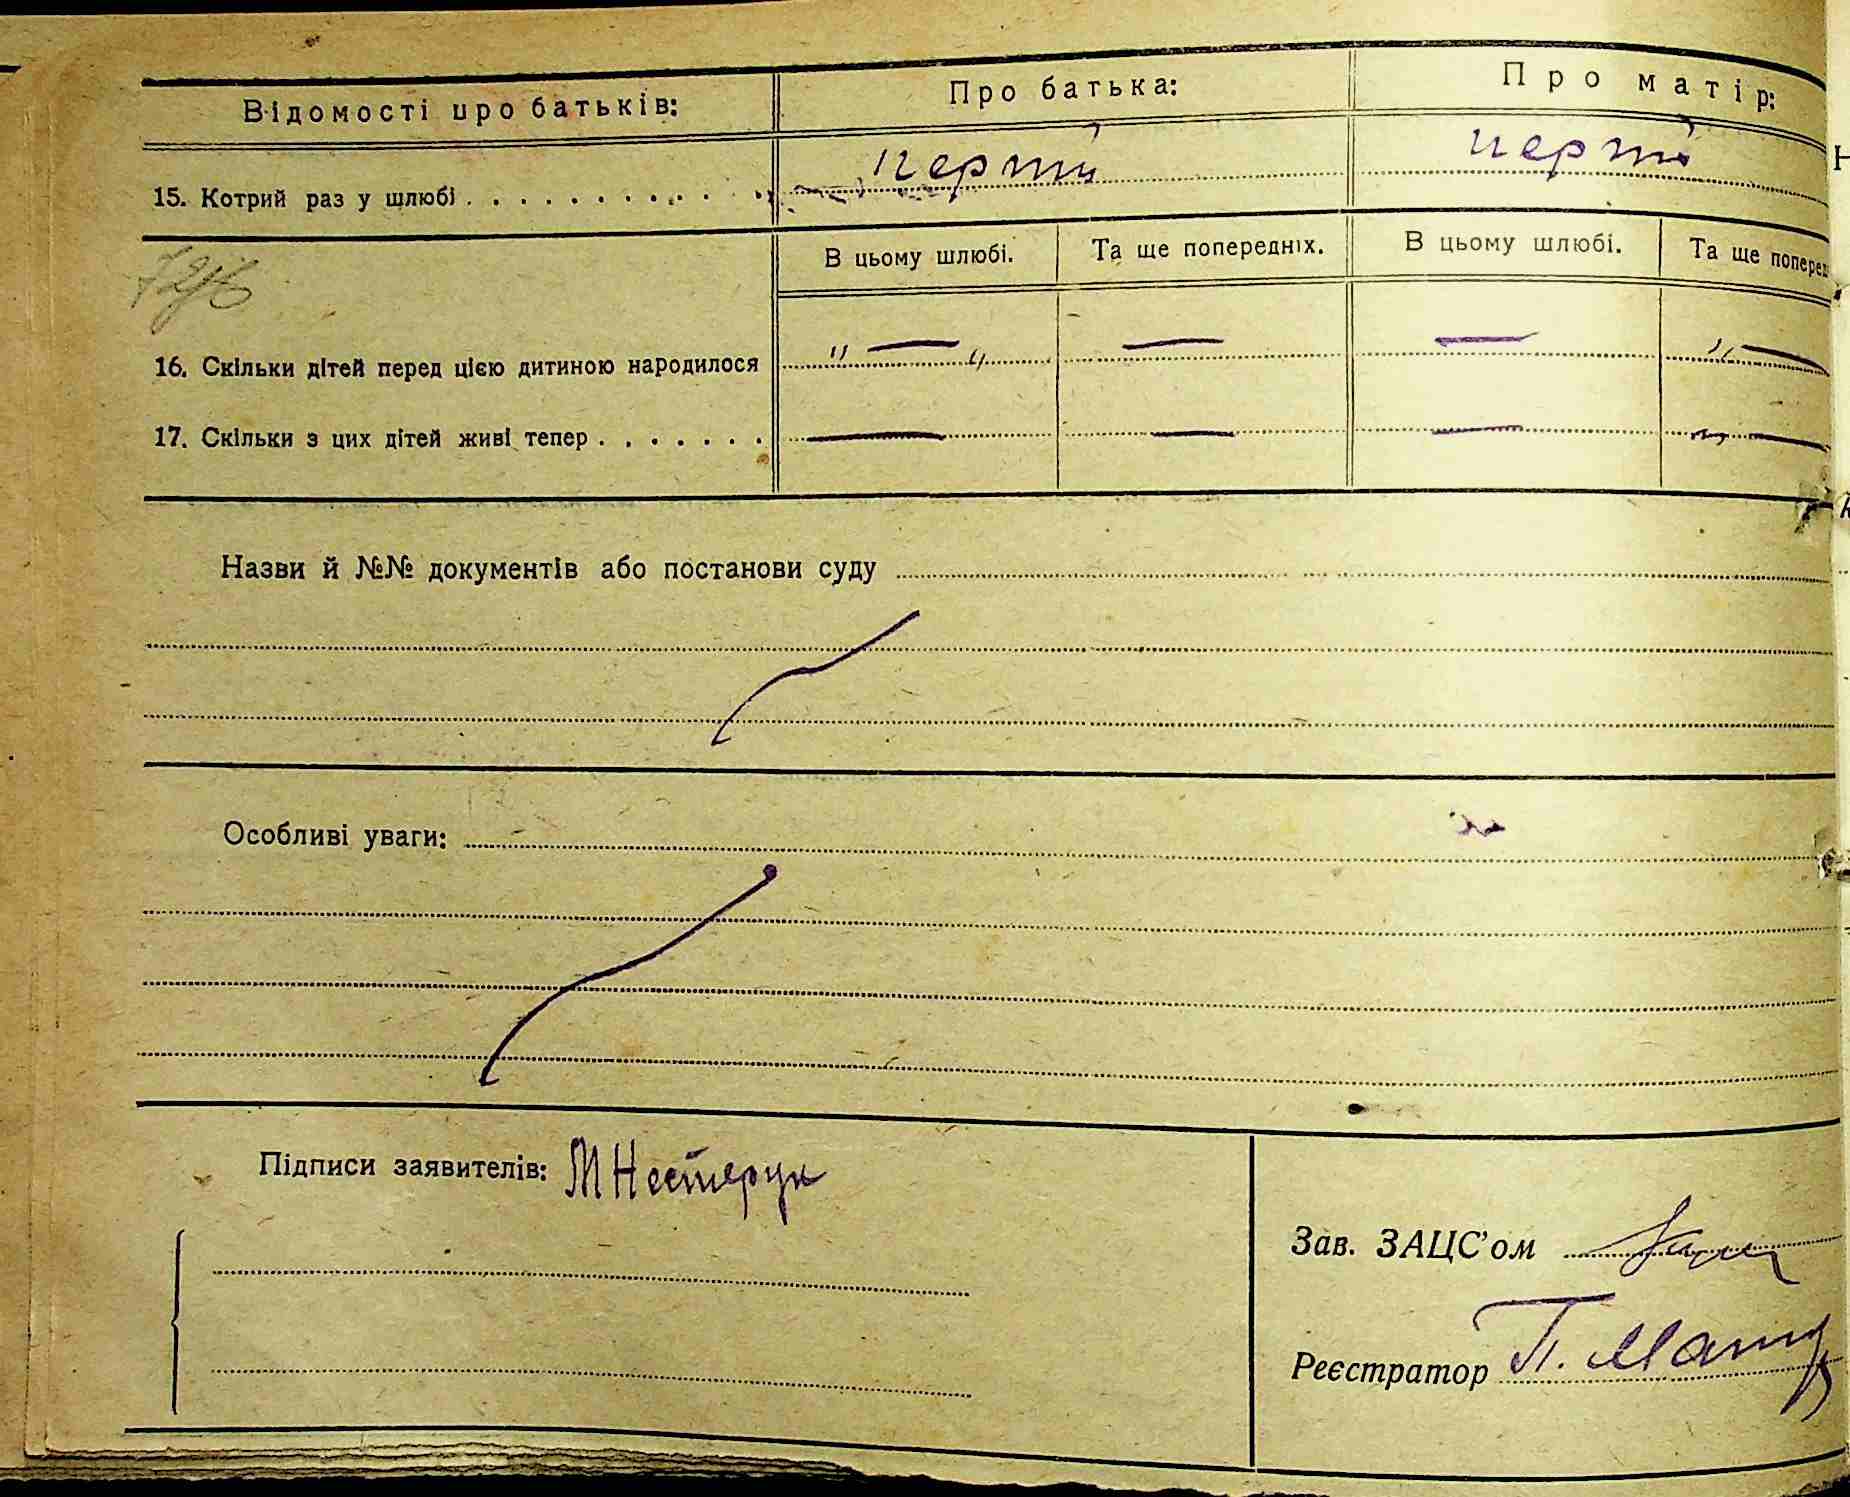 Відомості про батьків: Про батька: Про матір:
15. Котрий раз у шлюбі . . . . . . . . . . . . перший перший
В цьому шлюбі. Та ще попередніх. В цьому шлюбі. Та ще поперед
16. Скільки дітей перед цією дитиною народилося " — " — — " —
17. Скільки з цих дітей живі тепер . . . . . . . — — — —
Назви й №№ документів або постанови суду
Особливі уваги:
Підписи заявителів: М Нестерук
Зав. ЗАЦС'ом
Реєстратор П.